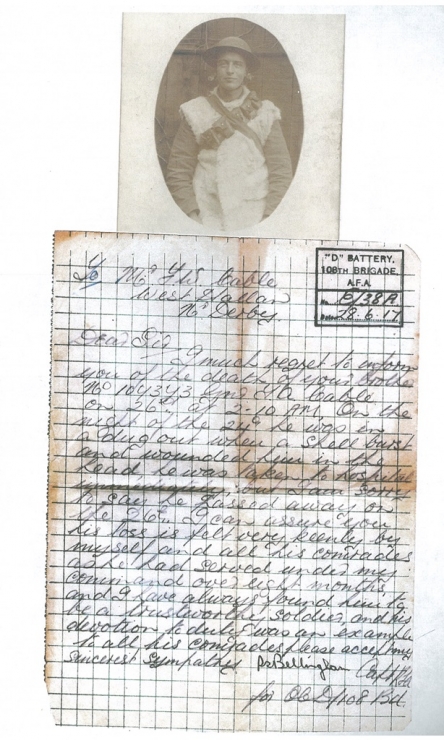 "D" BATTERY,
108TH BRIGADE,
A.F.A.
No. B/38A
Date 28.6.17
To Mr F W Cable
West Hallam
Nr Derby
Dear Sir
I much regret to inform
you of the death of your Brother
No 104343 Gnr Cable
on 26th at 2-10 AM. On the
night of the 24th he was in
a dug out when a shell burst
and wounded him in the
head he was taken to hospital
immediately but I am sorry
to say he passed away on
the 26th. I can assure you
his loss is felt very keenly by
myself and all his comrades
as he had served under my
command over eight months,
and I have always found him to
be a trustworthy soldier, and his
devotion to duty was an example
to all his comrades please accept my
sincerest sympathy Bellingham
Capt RFA
for OC D/108 Bde